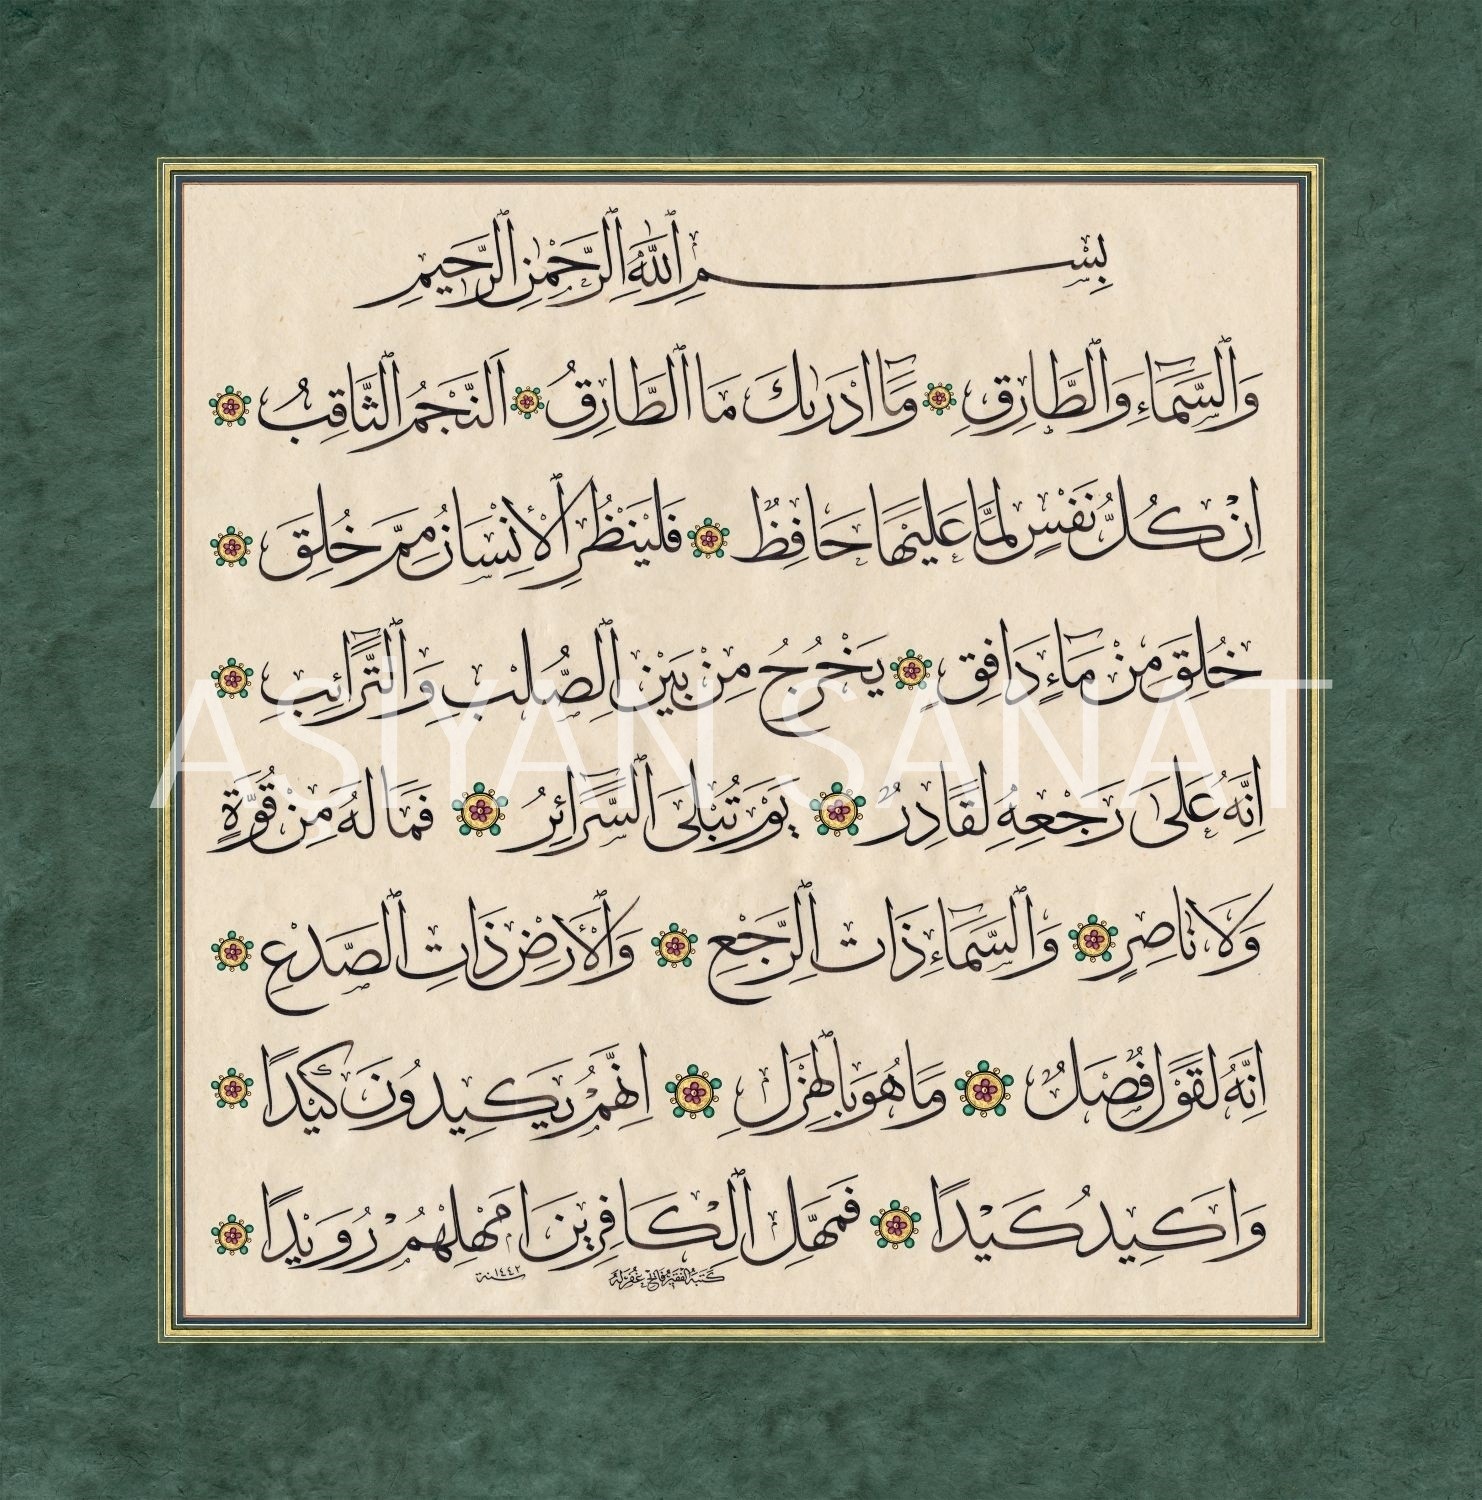 بِسْمِ ٱللّٰهِ ٱلرَّحْمٰنِ ٱلرَّحِيمِ
وَٱلسَّمَٓاءِ وَٱلطَّارِقِ وَمَٓا اَدْرٰيكَ مَا ٱلطَّارِقُ اَلنَّجْمُ ٱلثَّاقِبُ
اِنْ كُلُّ نَفْسٍ لَمَّا عَلَيْهَا حَافِظٌ فَلْيَنْظُرِ ٱلْاِنْسَانُ مِمَّ خُلِقَ
خُلِقَ مِنْ مَٓاءٍ دَافِقٍ يَخْرُجُ مِنْ بَيْنِ ٱلصُّلْبِ وَٱلتَّرَٓائِبِ
اِنَّهُ عَلٰى رَجْعِهِ لَقَادِرٌ يَوْمَ تُبْلَى ٱلسَّرَٓائِرُ فَمَا لَهُ مِنْ قُوَّةٍ
وَلَا نَاصِرٍ وَٱلسَّمَٓاءِ ذَاتِ ٱلرَّجْعِ وَٱلْاَرْضِ ذَاتِ ٱلصَّدْعِ
اِنَّهُ لَقَوْلٌ فَصْلٌ وَمَا هُوَ بِٱلْهَزْلِ اِنَّهُمْ يَكِيدُونَ كَيْدًا
وَاَكِيدُ كَيْدًا فَمَهِّلِ ٱلْكَافِرِينَ اَمْهِلْهُمْ رُوَيْدًا
كتبه الفقير فاتح غفر له سنة ١٤٤٢
ASIYAN SANAT